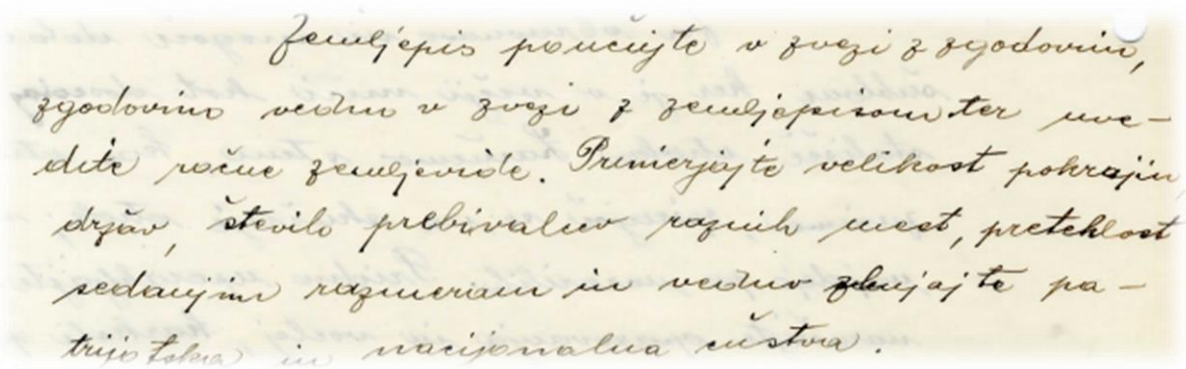 Zemljepis poučujte v zvezi z zgodovino,
zgodovino vedno v zvezi z zemljepisom ter uve-
dite ročne zemljevide. Primerjajte velikost pokrajin
držav, število prebivalcev raznih mest, preteklost
sedanjim razmeram in vedno zbujajte pa-
trijotska in nacijonalna čustva.